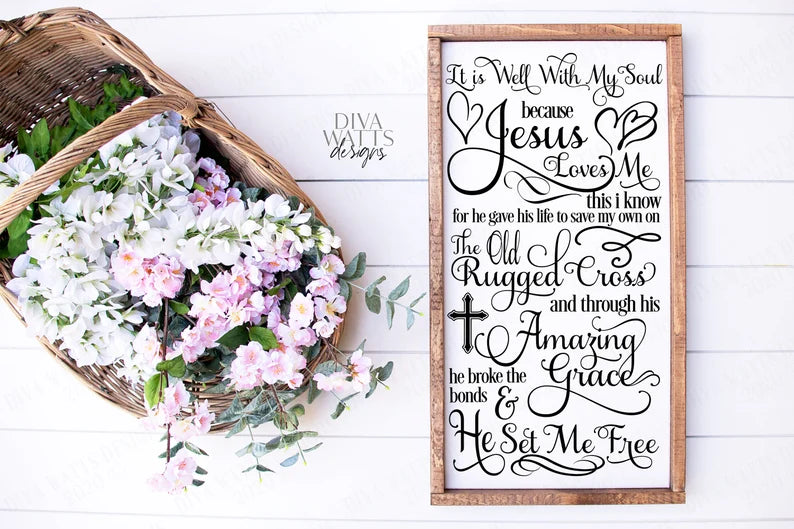 DIVA
WATTS
designs
It is Well With My Soul
because
Jesus
Loves Me
this i know
for he gave his life to save my own on
The Old
Rugged Cross
and through his
Amazing
Grace
he broke the
bonds
&
He Set Me Free